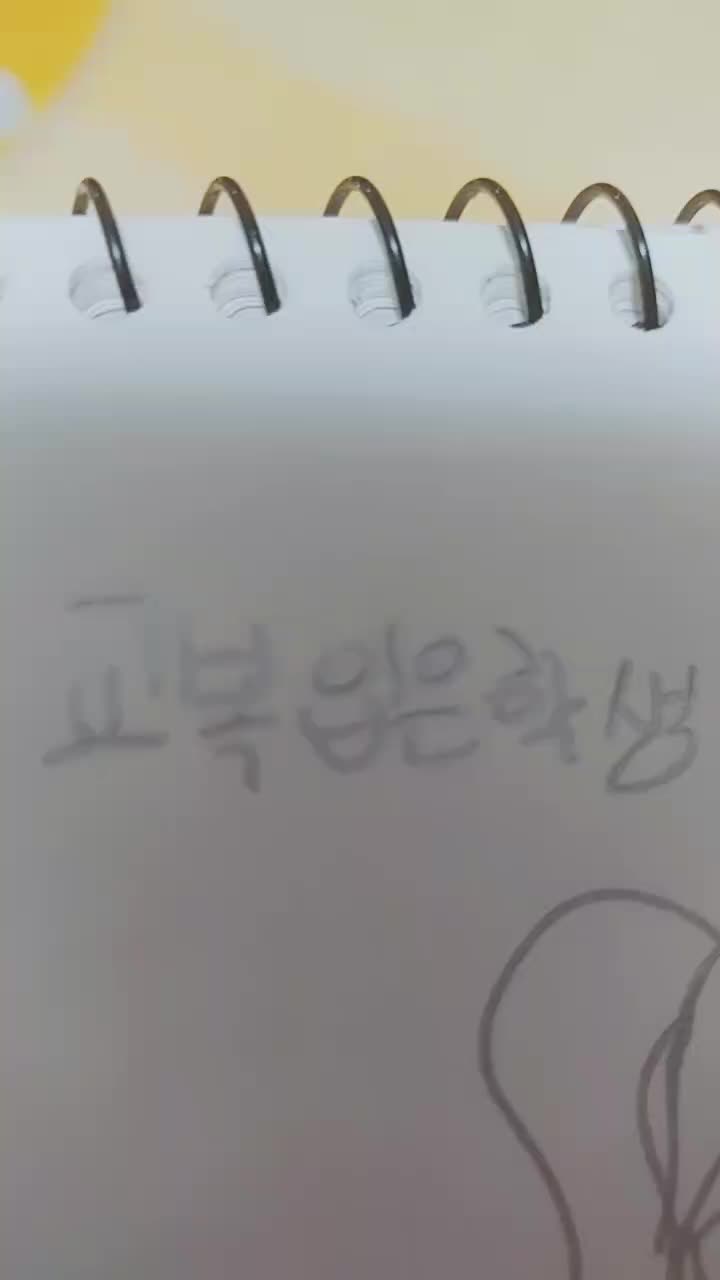 교복 입은 학생